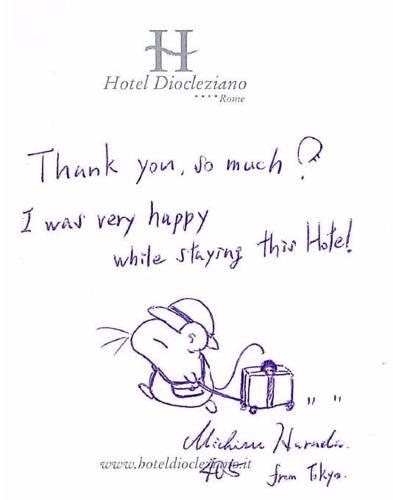 H
Hotel Diocleziano
**** Rome
Thank you, so much!
I was very happy
while staying this Hotel!
Michiru Harada.
www.hoteldiocleziano.it
405 from Tokyo.